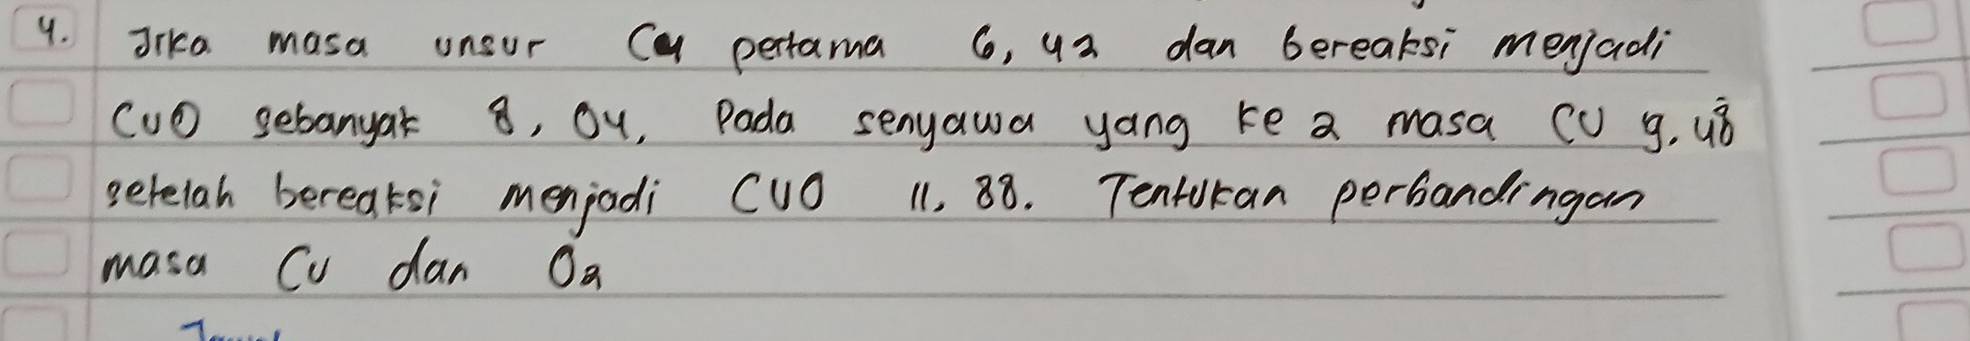 4. Jika masa unsur Cu pertama 6,42 dan bereaksi menjadi
CuO sebanyak 8,04. Pada senyawa yang ke 2 masa CU 9.48
setelah bereaksi menjadi CUO 11.88. Tentukan perbandingan
masa Cu dan O2